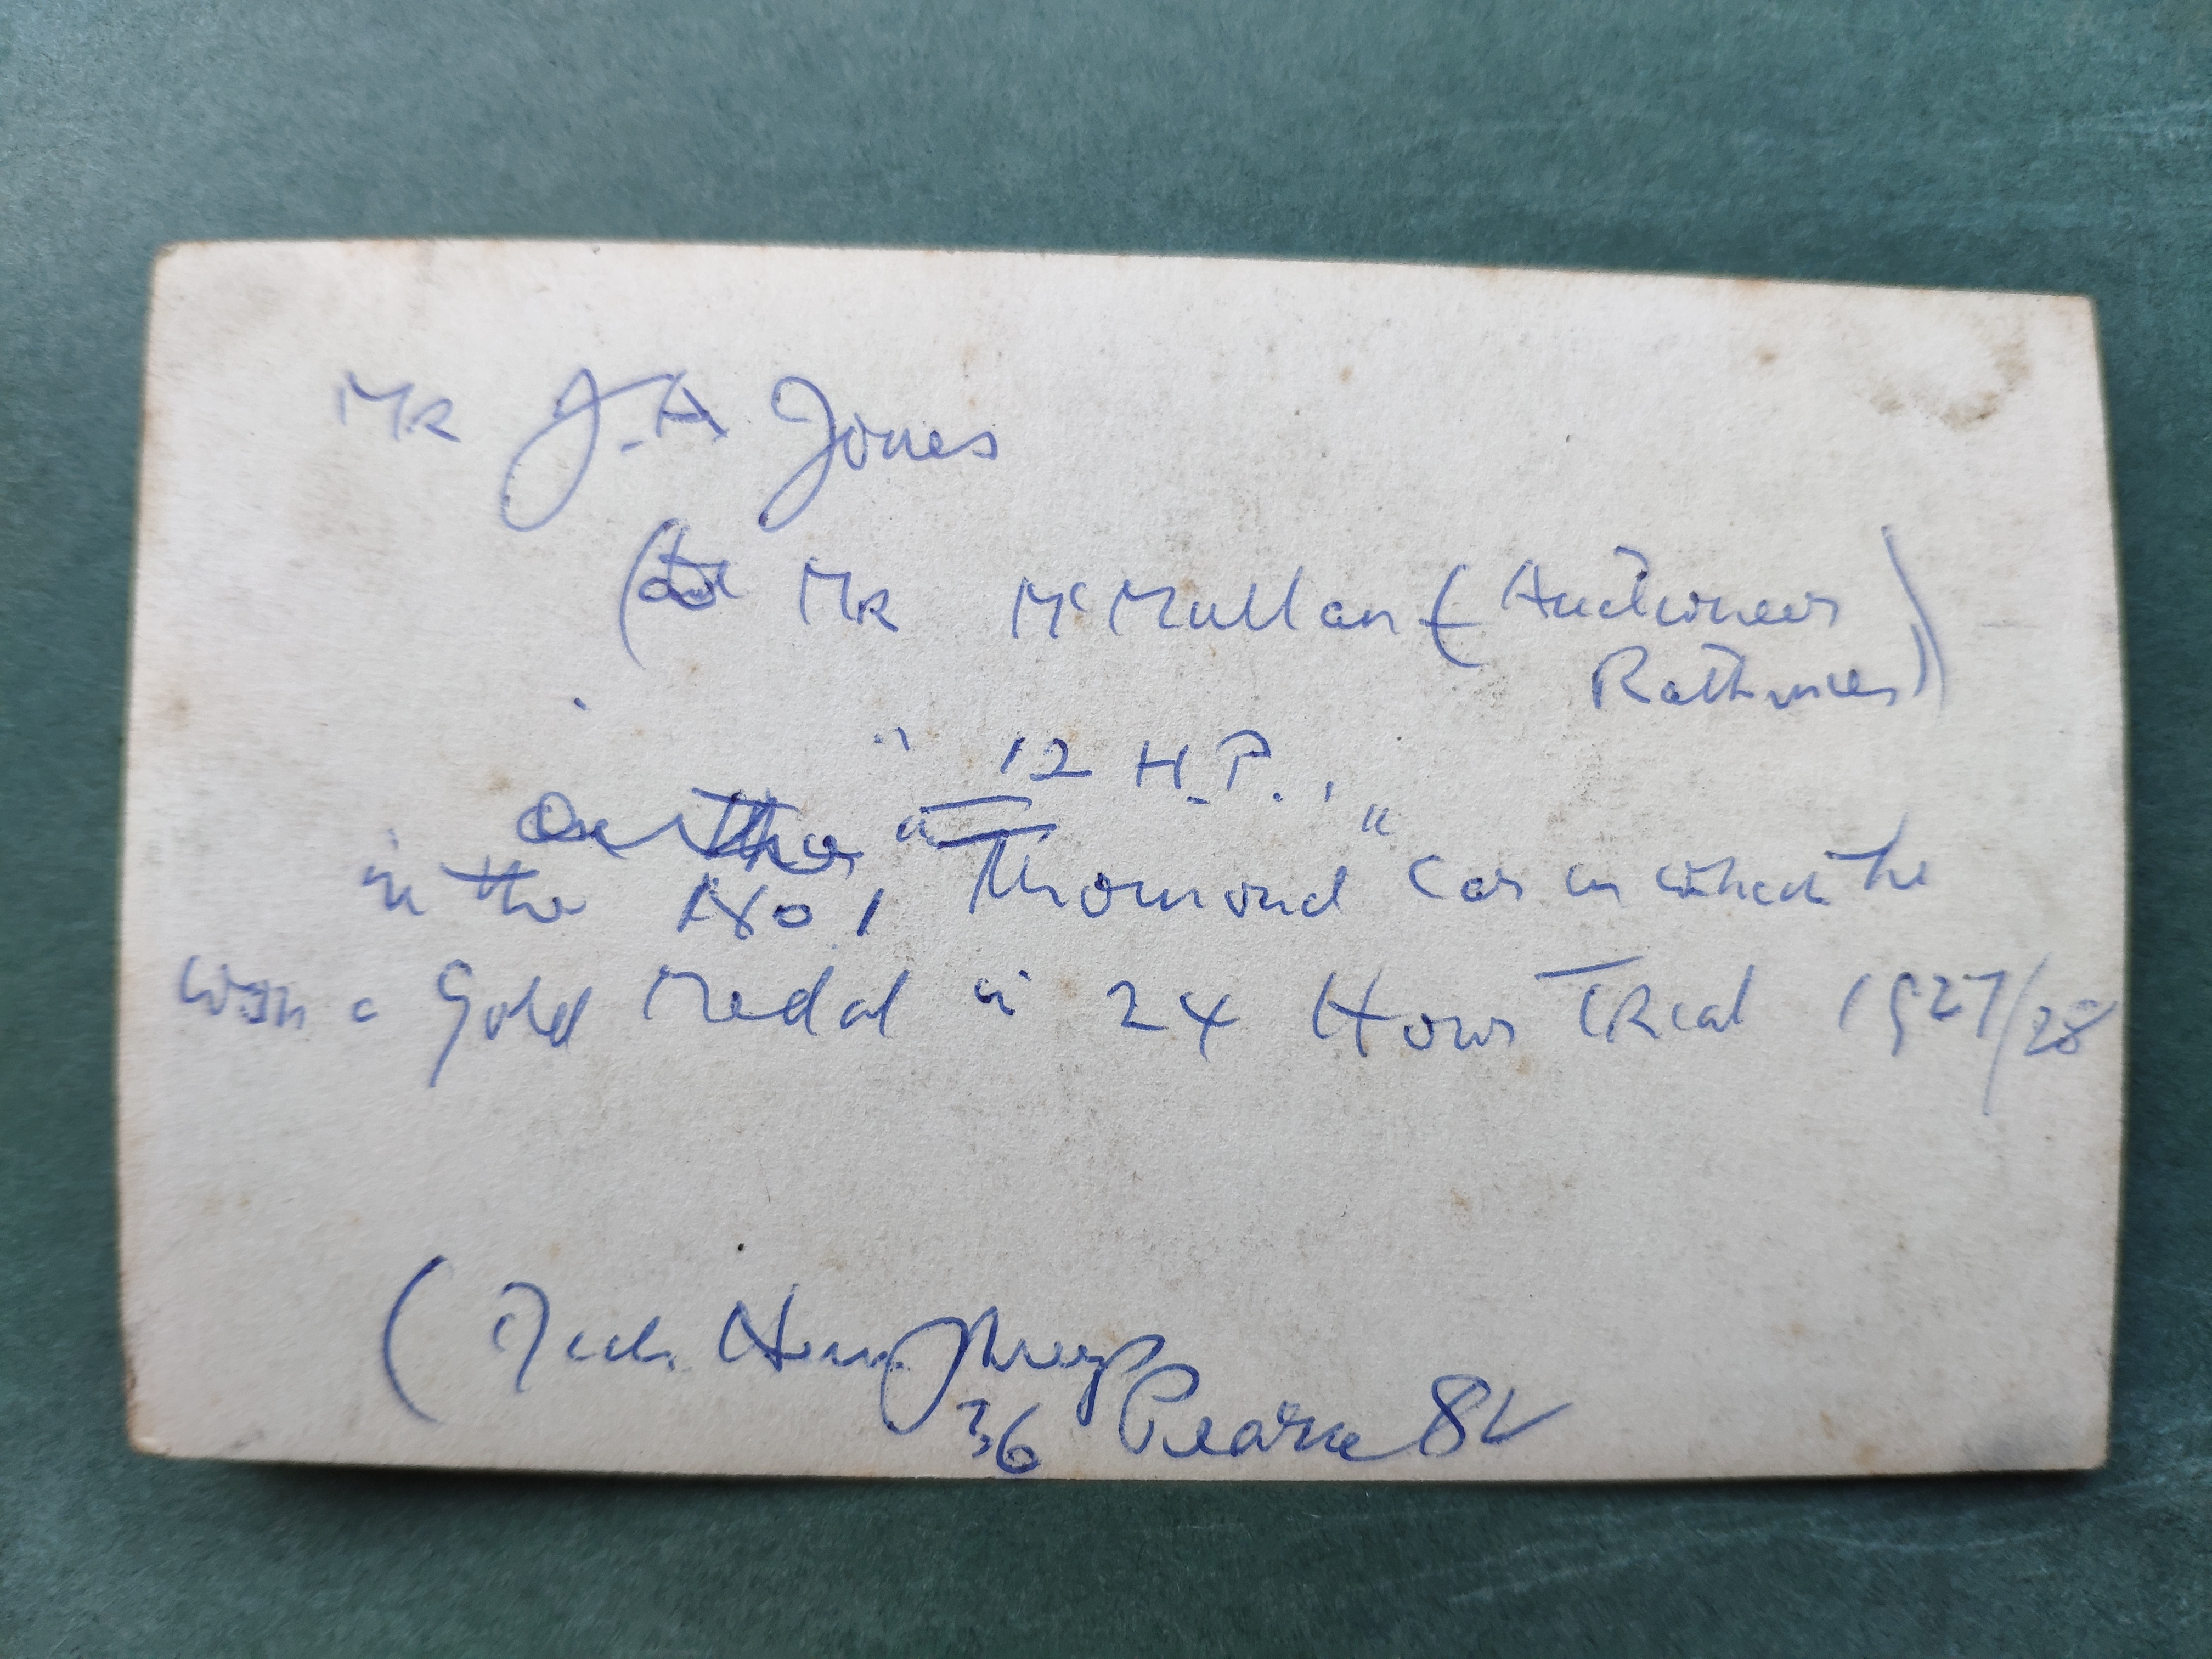 Mr J.A Jones
( Mr McMullan ( Auctioneer
Rathmines )
" 12 H.P. "
On the
in the No 1 " Thomond " Car in which he
won a Gold Medal in 24 Hour Trial 1927/28
( Jack Humphreys
36 Pearse St